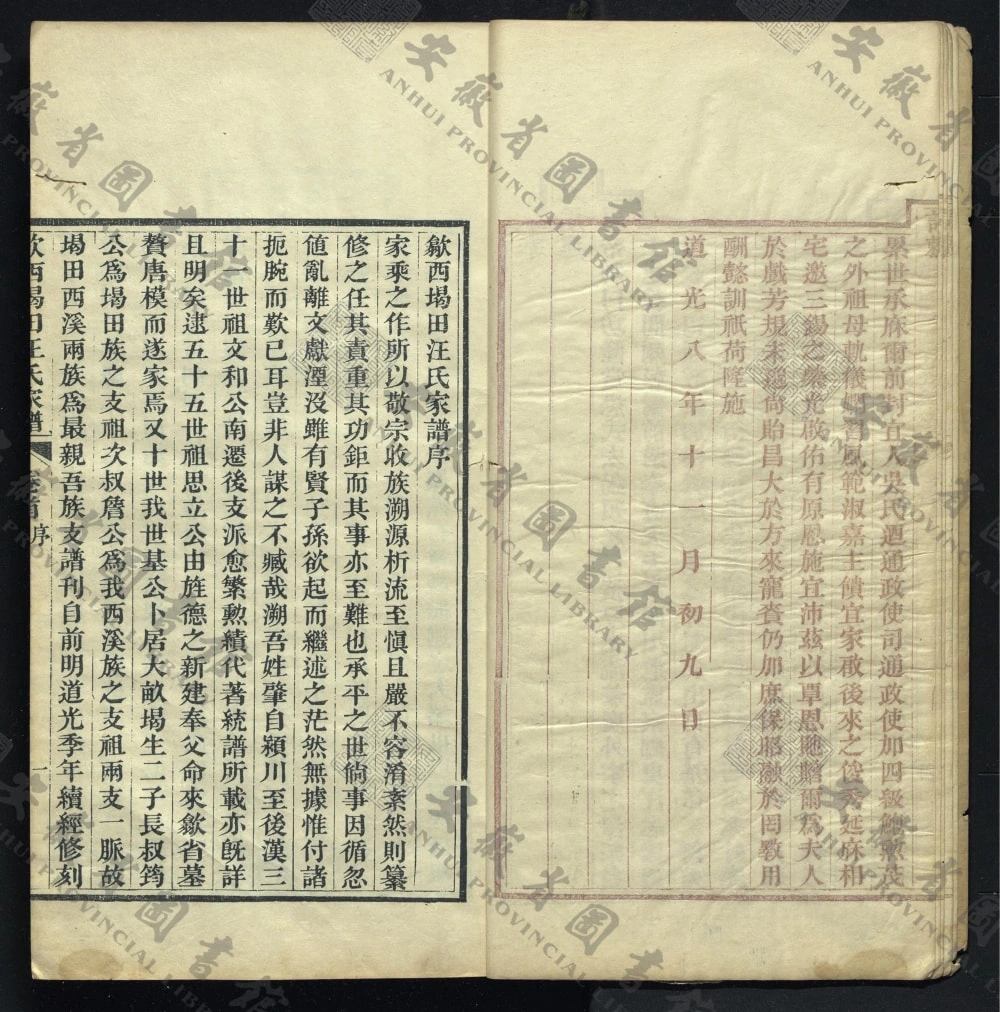 累世承庥爾前封宜人吳氏迺通政使司通政使加四級鮑勲茂
之外祖母軌儀蠲習風範淑嘉主饋宜家啟後來之俊秀延庥相
宅邀三錫之榮光啟佑有原慰施宜沛茲以覃恩貤贈爾爲夫人
於戲芳規未遠尚貽昌大於方來寵賚仍加庶保昭融於罔斁用
酬懿訓祇荷隆施
道光八年十一月初九日
歙西堨田汪氏家譜序
家乘之作所以敬宗收族溯源析流至愼且嚴不容淆紊然則纂
修之任其責重其功鉅而其事亦至難也承平之世倘事因循忽
値亂離文獻湮沒雖有賢子孫欲起而繼述之茫然無據惟付諸
扼腕而歎已耳豈非人謀之不臧哉溯吾姓肇自潁川至後漢三
十一世祖文和公南遷後支派愈繁勲績代著統譜所載亦旣詳
且明矣逮五十五世祖思立公由旌德之新建奉父命來歙省墓
贅唐模而遂家焉又十世我世基公卜居大畝堨生二子長叔筠
公爲堨田族之支祖次叔詹公爲我西溪族之支祖兩支一脈故
堨田西溪兩族爲最親吾族支譜刊自前明道光季年續經修刻
歙西堨田汪氏家譜 卷首 序 一
ANHUI PROVINCIAL LIBRARY
安徽省圖書館